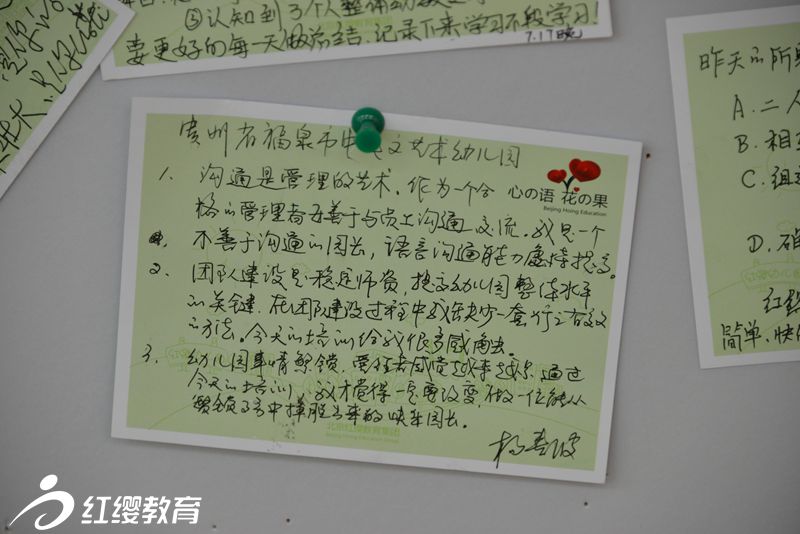 ③认知到3个人整体
要更好的每一天做总结,记录下来学习不段学习!
7.17晚
贵州省福泉市 艺术幼儿园
心の语 花の果
Beijing Hoing Education
1、沟通是管理的艺术,作为一个合
格的管理者要善于与员工沟通交流。我是一个
不善于沟通的园长,语言沟通能力 提高。
2、团队建设是稳定师资,提高幼儿园整体水平
的关键,在团队建设过程中我缺少一套行之有效
的方法。今天的培训给我很多感触。
3、幼儿园事情繁锁, 感觉越来越 通过
今天的培训,我才觉得 要改变,做一位能从
繁锁 中挣脱出来的快乐园长。
杨春波
北京红缨教育集团
Beijing Hoing Education Group
昨天的所
A.二人
B.相互
C.组
D.确
红缨
简单、快
红缨教育